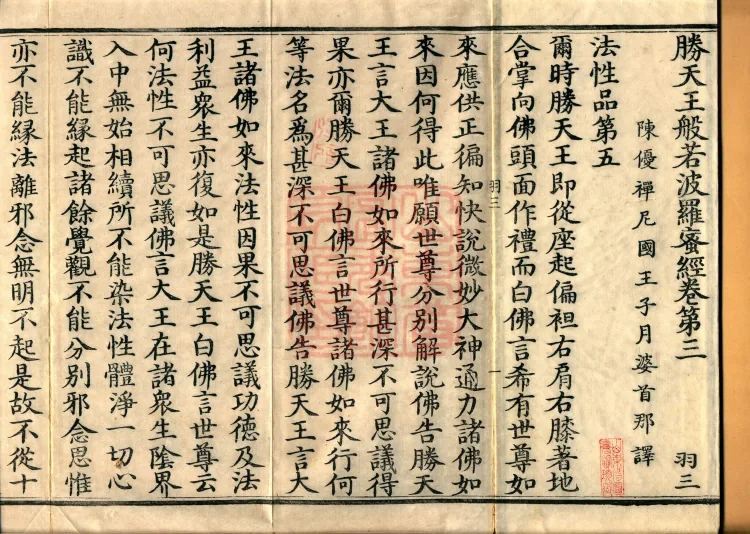 勝天王般若波羅蜜經卷第三 羽三
陳優禪尼國王子月婆首那譯
法性品第五
爾時勝天王即從座起偏袒右肩右膝著地
合掌向佛頭面作禮而白佛言希有世尊如
羽三 一
來應供正徧知快說微妙大神通力諸佛如
來因何得此唯願世尊分別解說佛告勝天
王言大王諸佛如來所行甚深不可思議得
果亦爾勝天王白佛言世尊諸佛如來行何
等法名爲甚深不可思議佛告勝天王言大
王諸佛如來法性因果不可思議功德及法
利益衆生亦復如是勝天王白佛言世尊云
何法性不可思議佛言大王在諸衆生陰界
入中無始相續所不能染法性體淨一切心
識不能緣起諸餘覺觀不能分別邪念思惟
亦不能緣法離邪念無明不起是故不從十